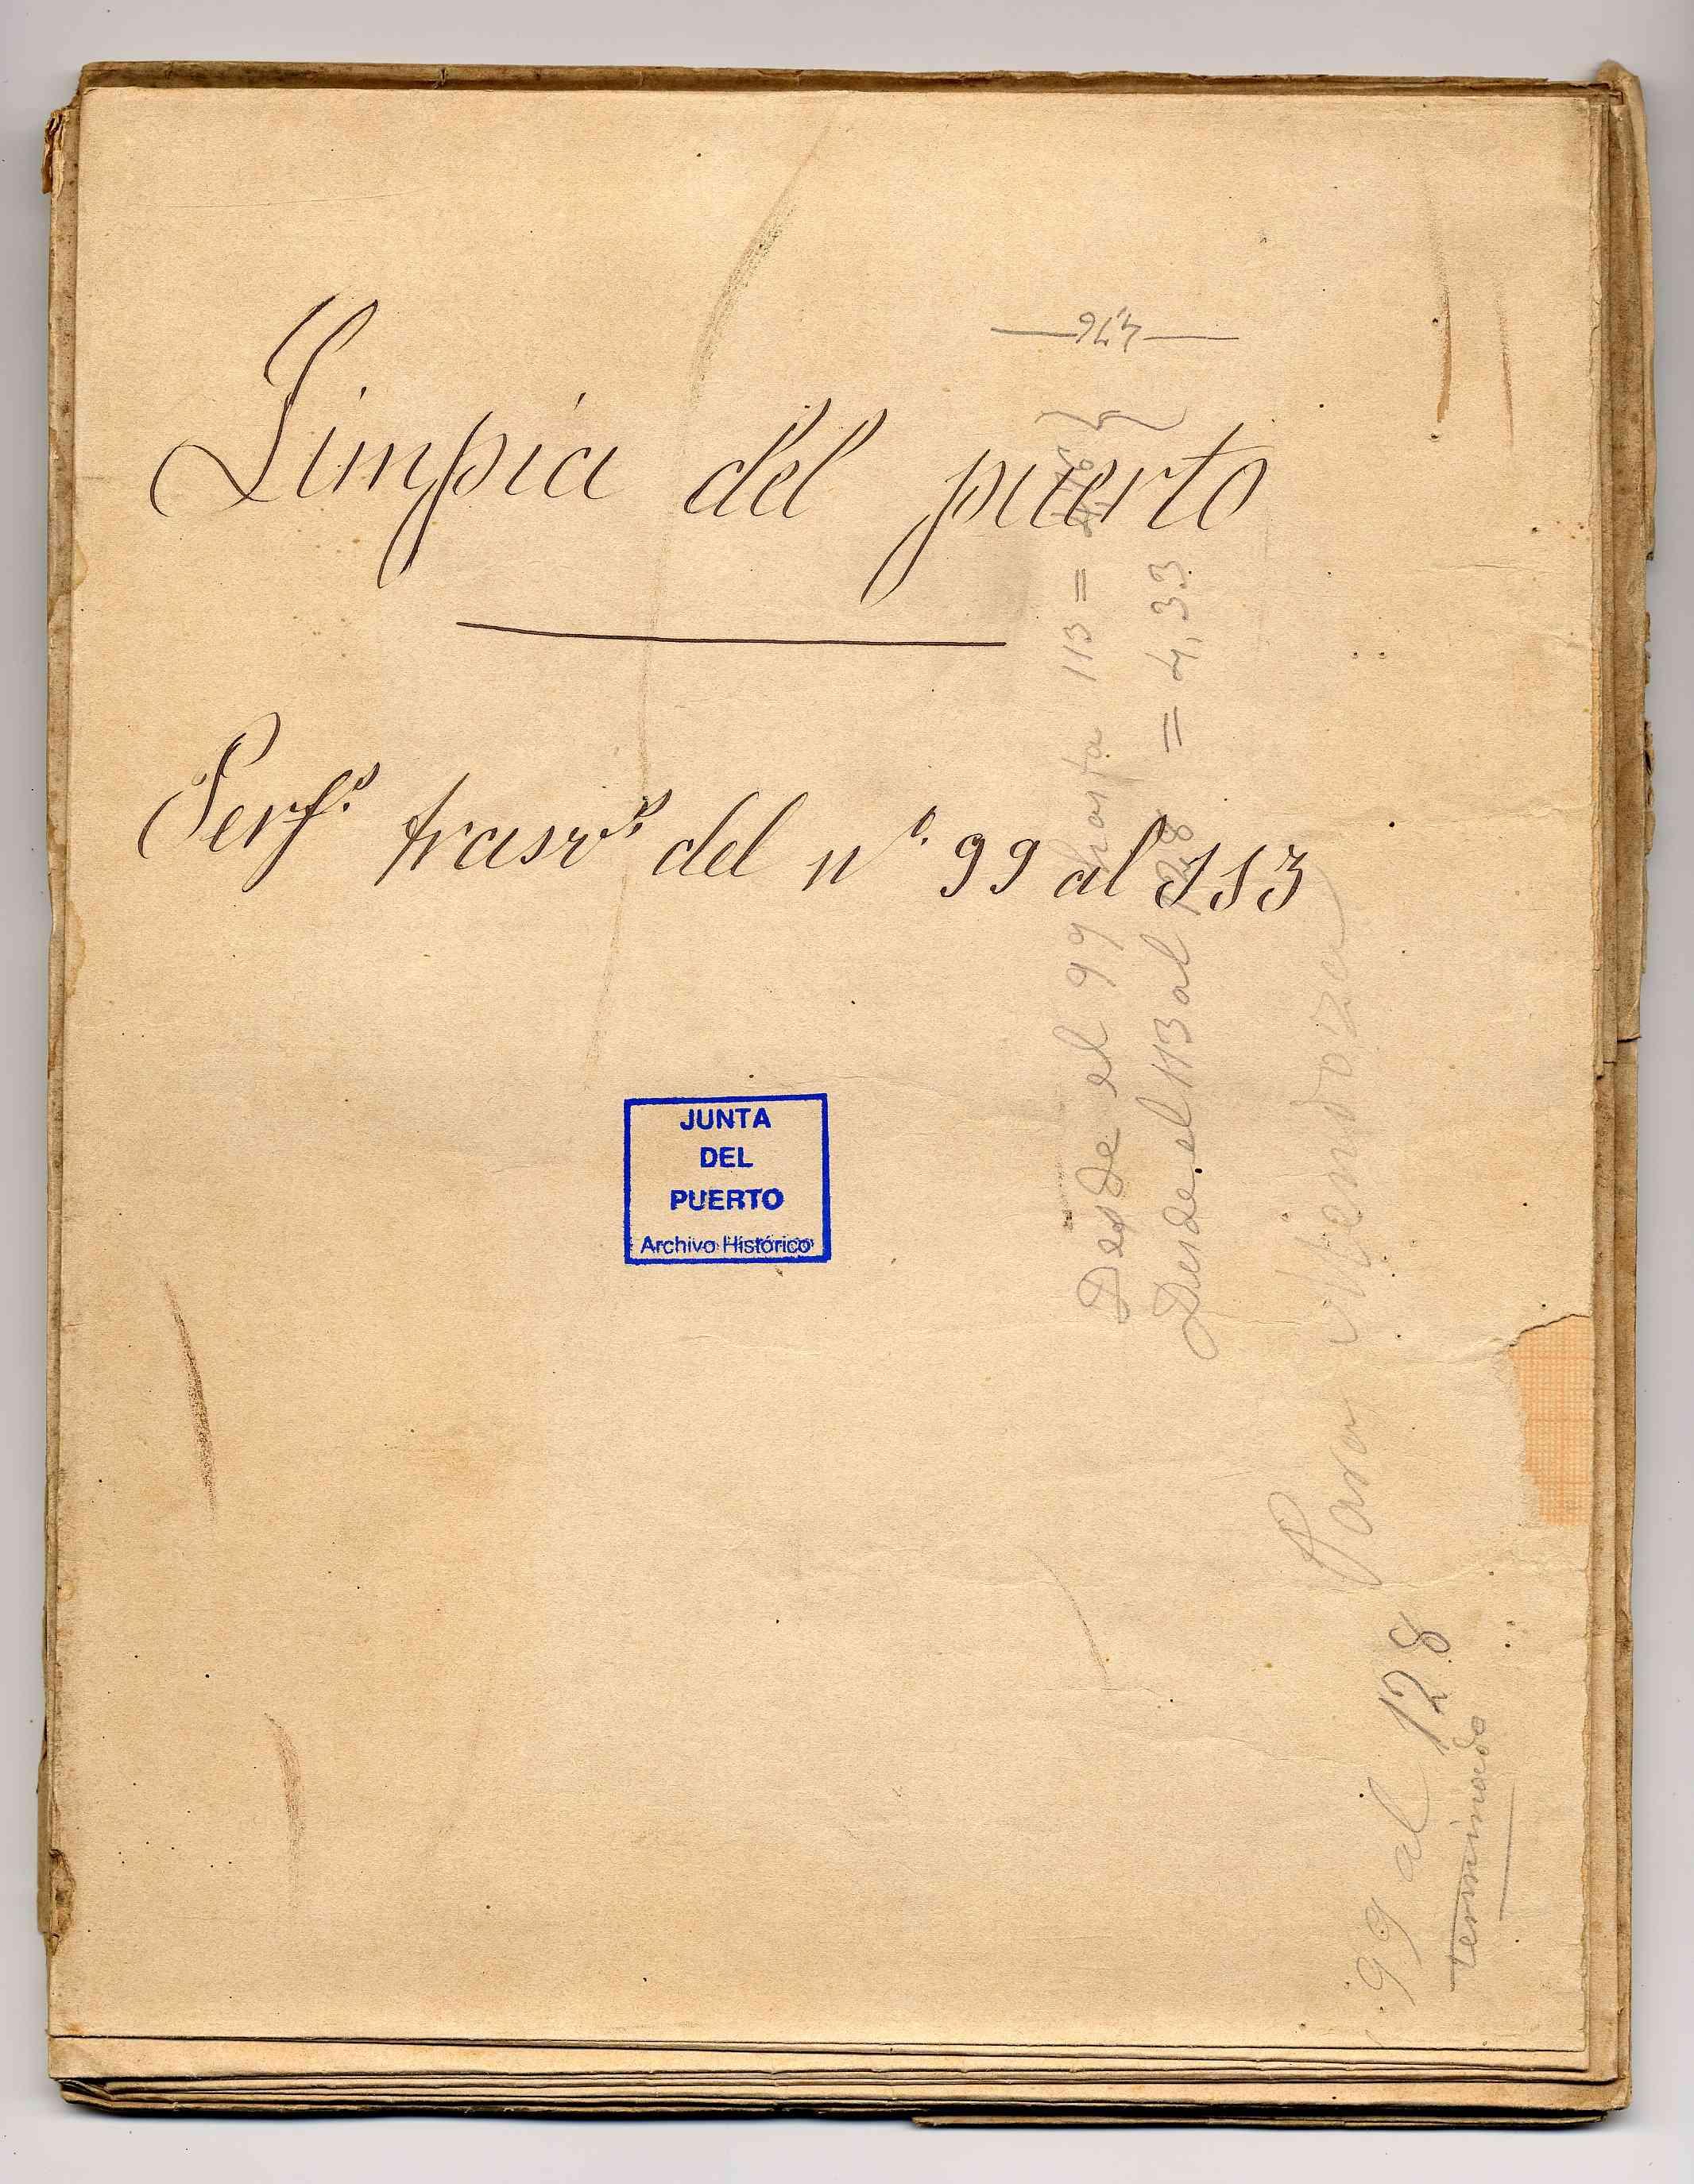 Limpia del puerto
Perfs. trasvs. del nº. 99 al 113
JUNTA
DEL
PUERTO
Archivo Histórico
4,76
Desde el 99 hasta 113 =
Desde el 113 al 128 = 4,33
Para Mendoza
99 al 128
terminado